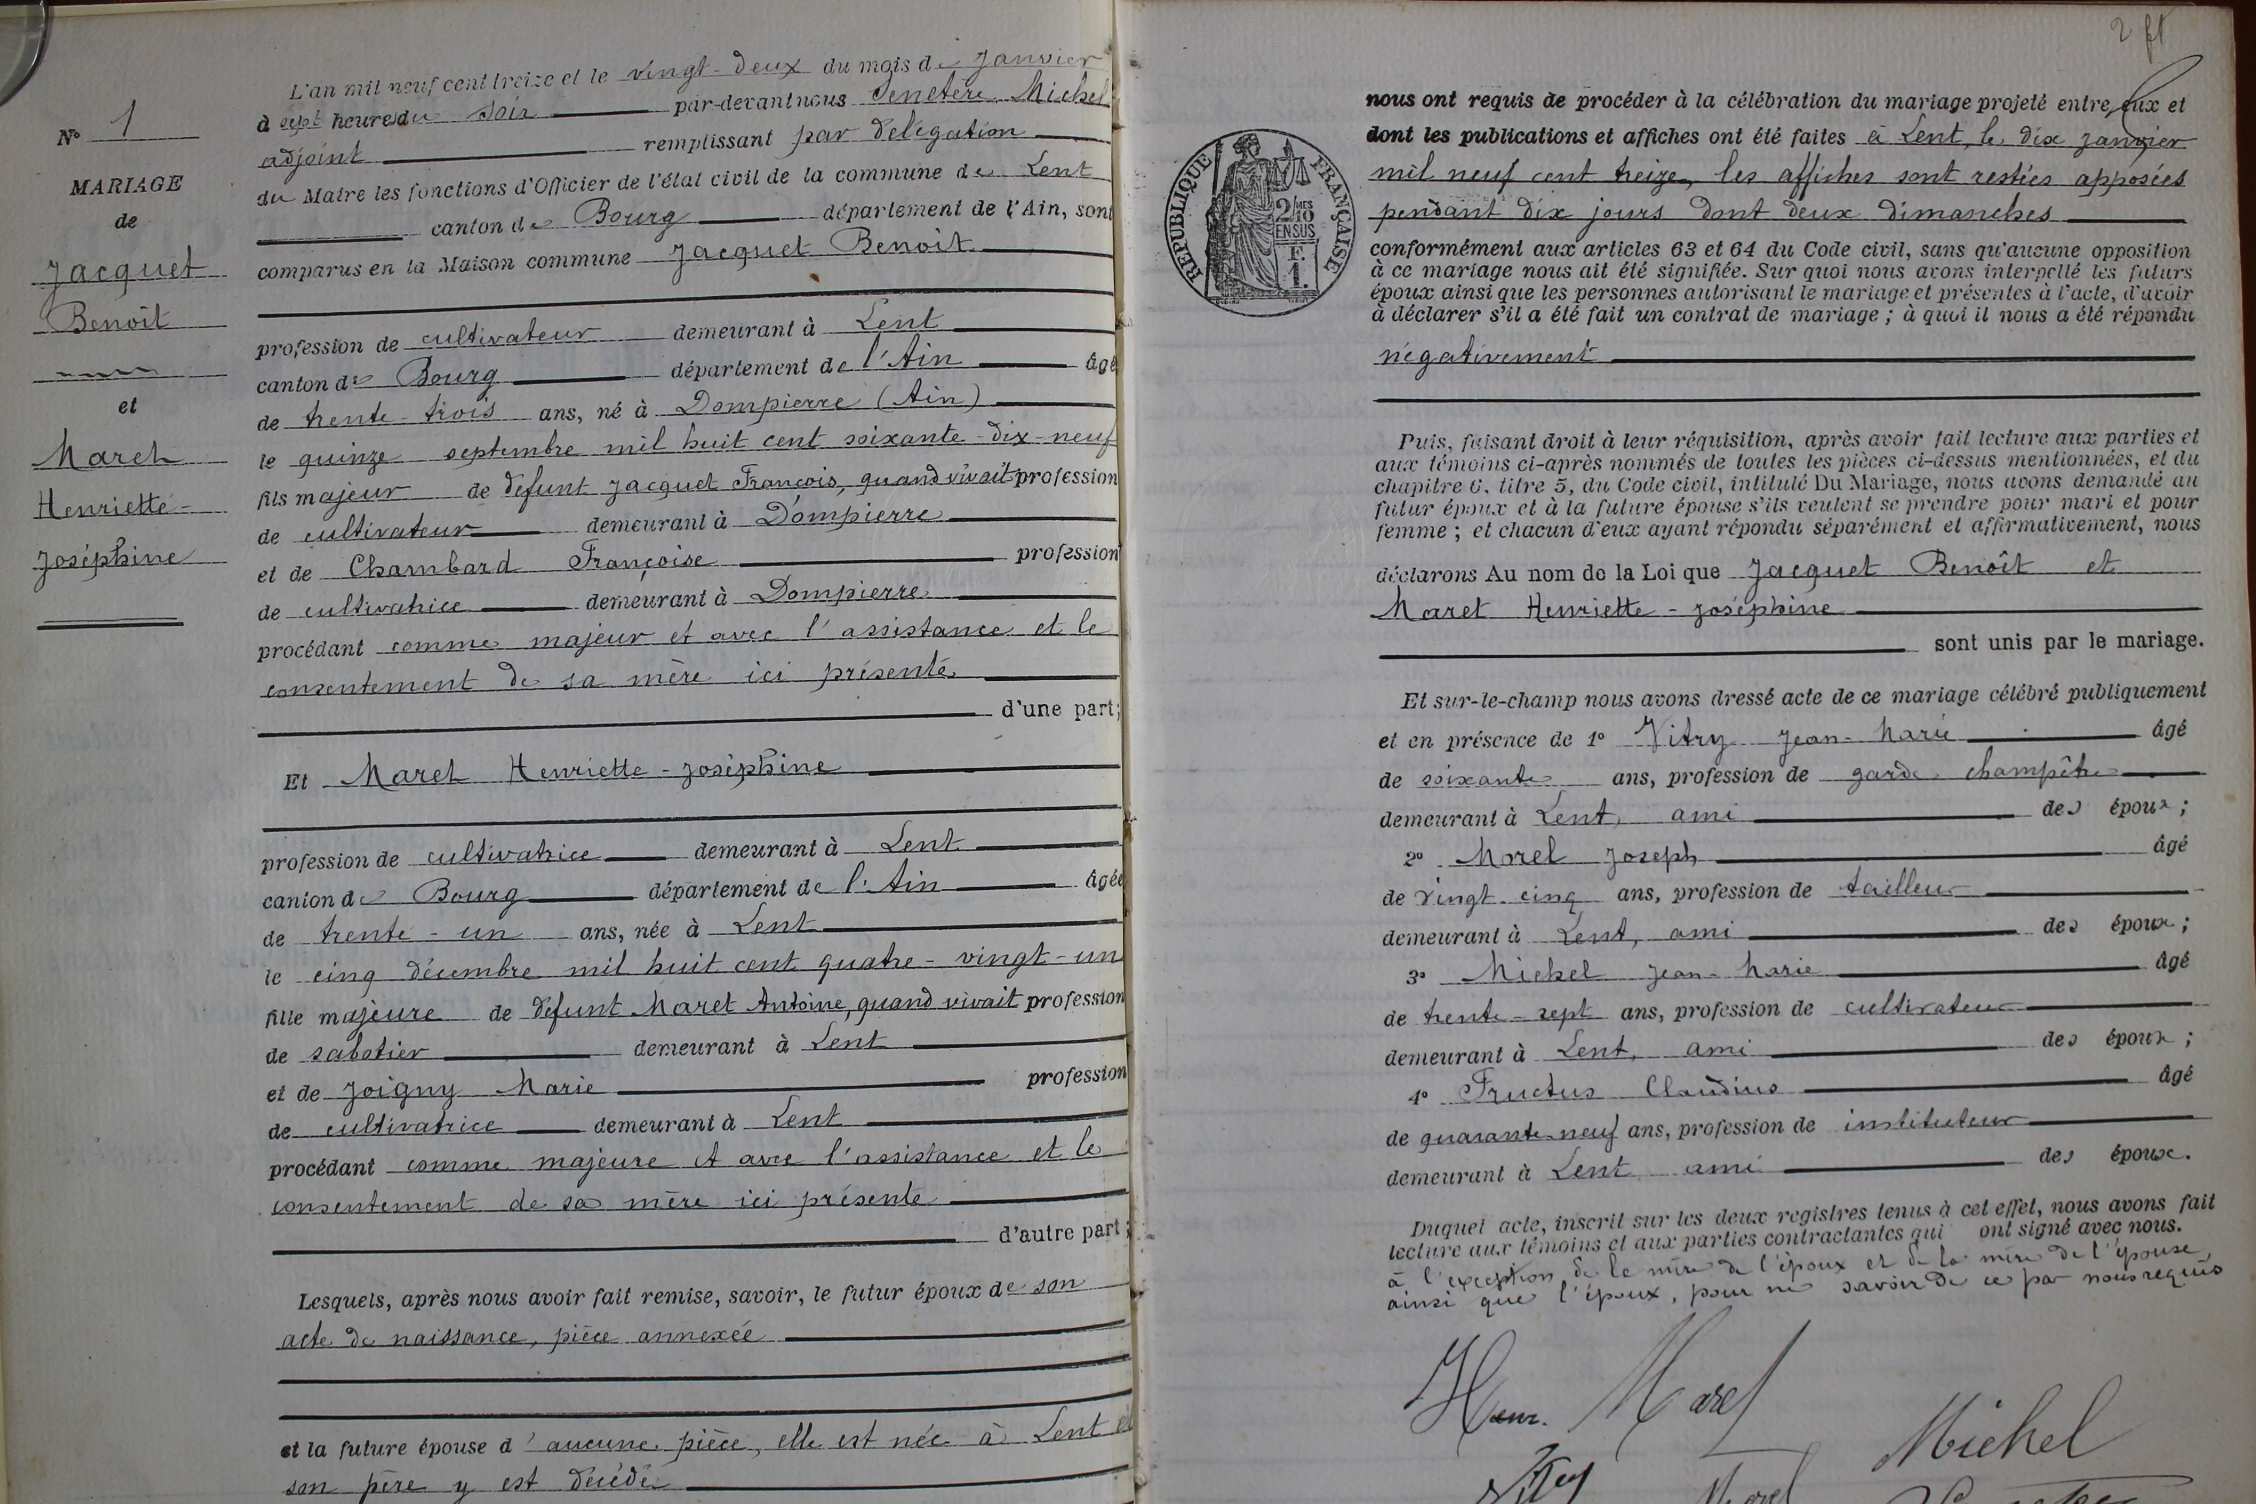 N° 1
MARIAGE
de
Jacquet
Benoît
et
Maret
Henriette-
Joséphine
L'an mil neuf cent treize et le vingt-deux du mois de Janvier
à sept heures du soir par-devant nous Venetère Michel
adjoint remplissant par délégation
du Maire les fonctions d'Officier de l'état civil de la commune de Lent
canton de Bourg département de l'Ain, sont
comparus en la Maison commune Jacquet Benoît
profession de cultivateur demeurant à Lent
canton de Bourg département de l'Ain âgé
de trente-trois ans, né à Dompierre (Ain)
le quinze septembre mil huit cent soixante-dix-neuf
fils majeur de défunt Jacquet François, quand vivait profession
de cultivateur demeurant à Dompierre
et de Chambard Françoise profession
de cultivatrice demeurant à Dompierre
procédant comme majeur et avec l'assistance et le
consentement de sa mère ici présente
d'une part;
Et Maret Henriette-Joséphine
profession de cultivatrice demeurant à Lent
canton de Bourg département de l'Ain âgée
de trente-un ans, née à Lent
le cinq décembre mil huit cent quatre-vingt-un
fille majeure de défunt Maret Antoine, quand vivait profession
de sabotier demeurant à Lent
et de Joigny Marie profession
de cultivatrice demeurant à Lent
procédant comme majeure et avec l'assistance et le
consentement de sa mère ici présente
d'autre part;
Lesquels, après nous avoir fait remise, savoir, le futur époux de son
acte de naissance, pièce annexée
et la future épouse d'aucune pièce, elle est née à Lent et
son père y est décédé
2
RÉPUBLIQUE FRANÇAISE
2/10 MES
EN SUS
F.
1.
nous ont requis de procéder à la célébration du mariage projeté entre eux et
dont les publications et affiches ont été faites à Lent, le dix janvier
mil neuf cent treize, les affiches sont restées apposées
pendant dix jours dont deux dimanches
conformément aux articles 63 et 64 du Code civil, sans qu'aucune opposition
à ce mariage nous ait été signifiée. Sur quoi nous avons interpellé les futurs
époux ainsi que les personnes autorisant le mariage et présentes à l'acte, d'avoir
à déclarer s'il a été fait un contrat de mariage ; à quoi il nous a été répondu
négativement
Puis, faisant droit à leur réquisition, après avoir fait lecture aux parties et
aux témoins ci-après nommés de toutes les pièces ci-dessus mentionnées, et du
chapitre 6, titre 5, du Code civil, intitulé Du Mariage, nous avons demandé au
futur époux et à la future épouse s'ils veulent se prendre pour mari et pour
femme ; et chacun d'eux ayant répondu séparément et affirmativement, nous
déclarons Au nom de la Loi que Jacquet Benoît et
Maret Henriette-Joséphine
sont unis par le mariage.
Et sur-le-champ nous avons dressé acte de ce mariage célébré publiquement
et en présence de 1° Vitry Jean-Marie âgé
de soixante ans, profession de garde champêtre
demeurant à Lent, ami des époux ;
2° Morel Joseph âgé
de vingt-cinq ans, profession de tailleur
demeurant à Lent, ami des époux ;
3° Michel Jean-Marie âgé
de trente-sept ans, profession de cultivateur
demeurant à Lent, ami des époux ;
4° Fructus Claudius âgé
de quarante-neuf ans, profession de instituteur
demeurant à Lent ami des époux.
Duquel acte, inscrit sur les deux registres tenus à cet effet, nous avons fait
lecture aux témoins et aux parties contractantes qui ont signé avec nous.
à l'exception de la mère de l'époux et de la mère de l'épouse,
ainsi que l'époux, pour ne savoir de ce par nous requis
Henr. Maret
Michel
Vitry Morel